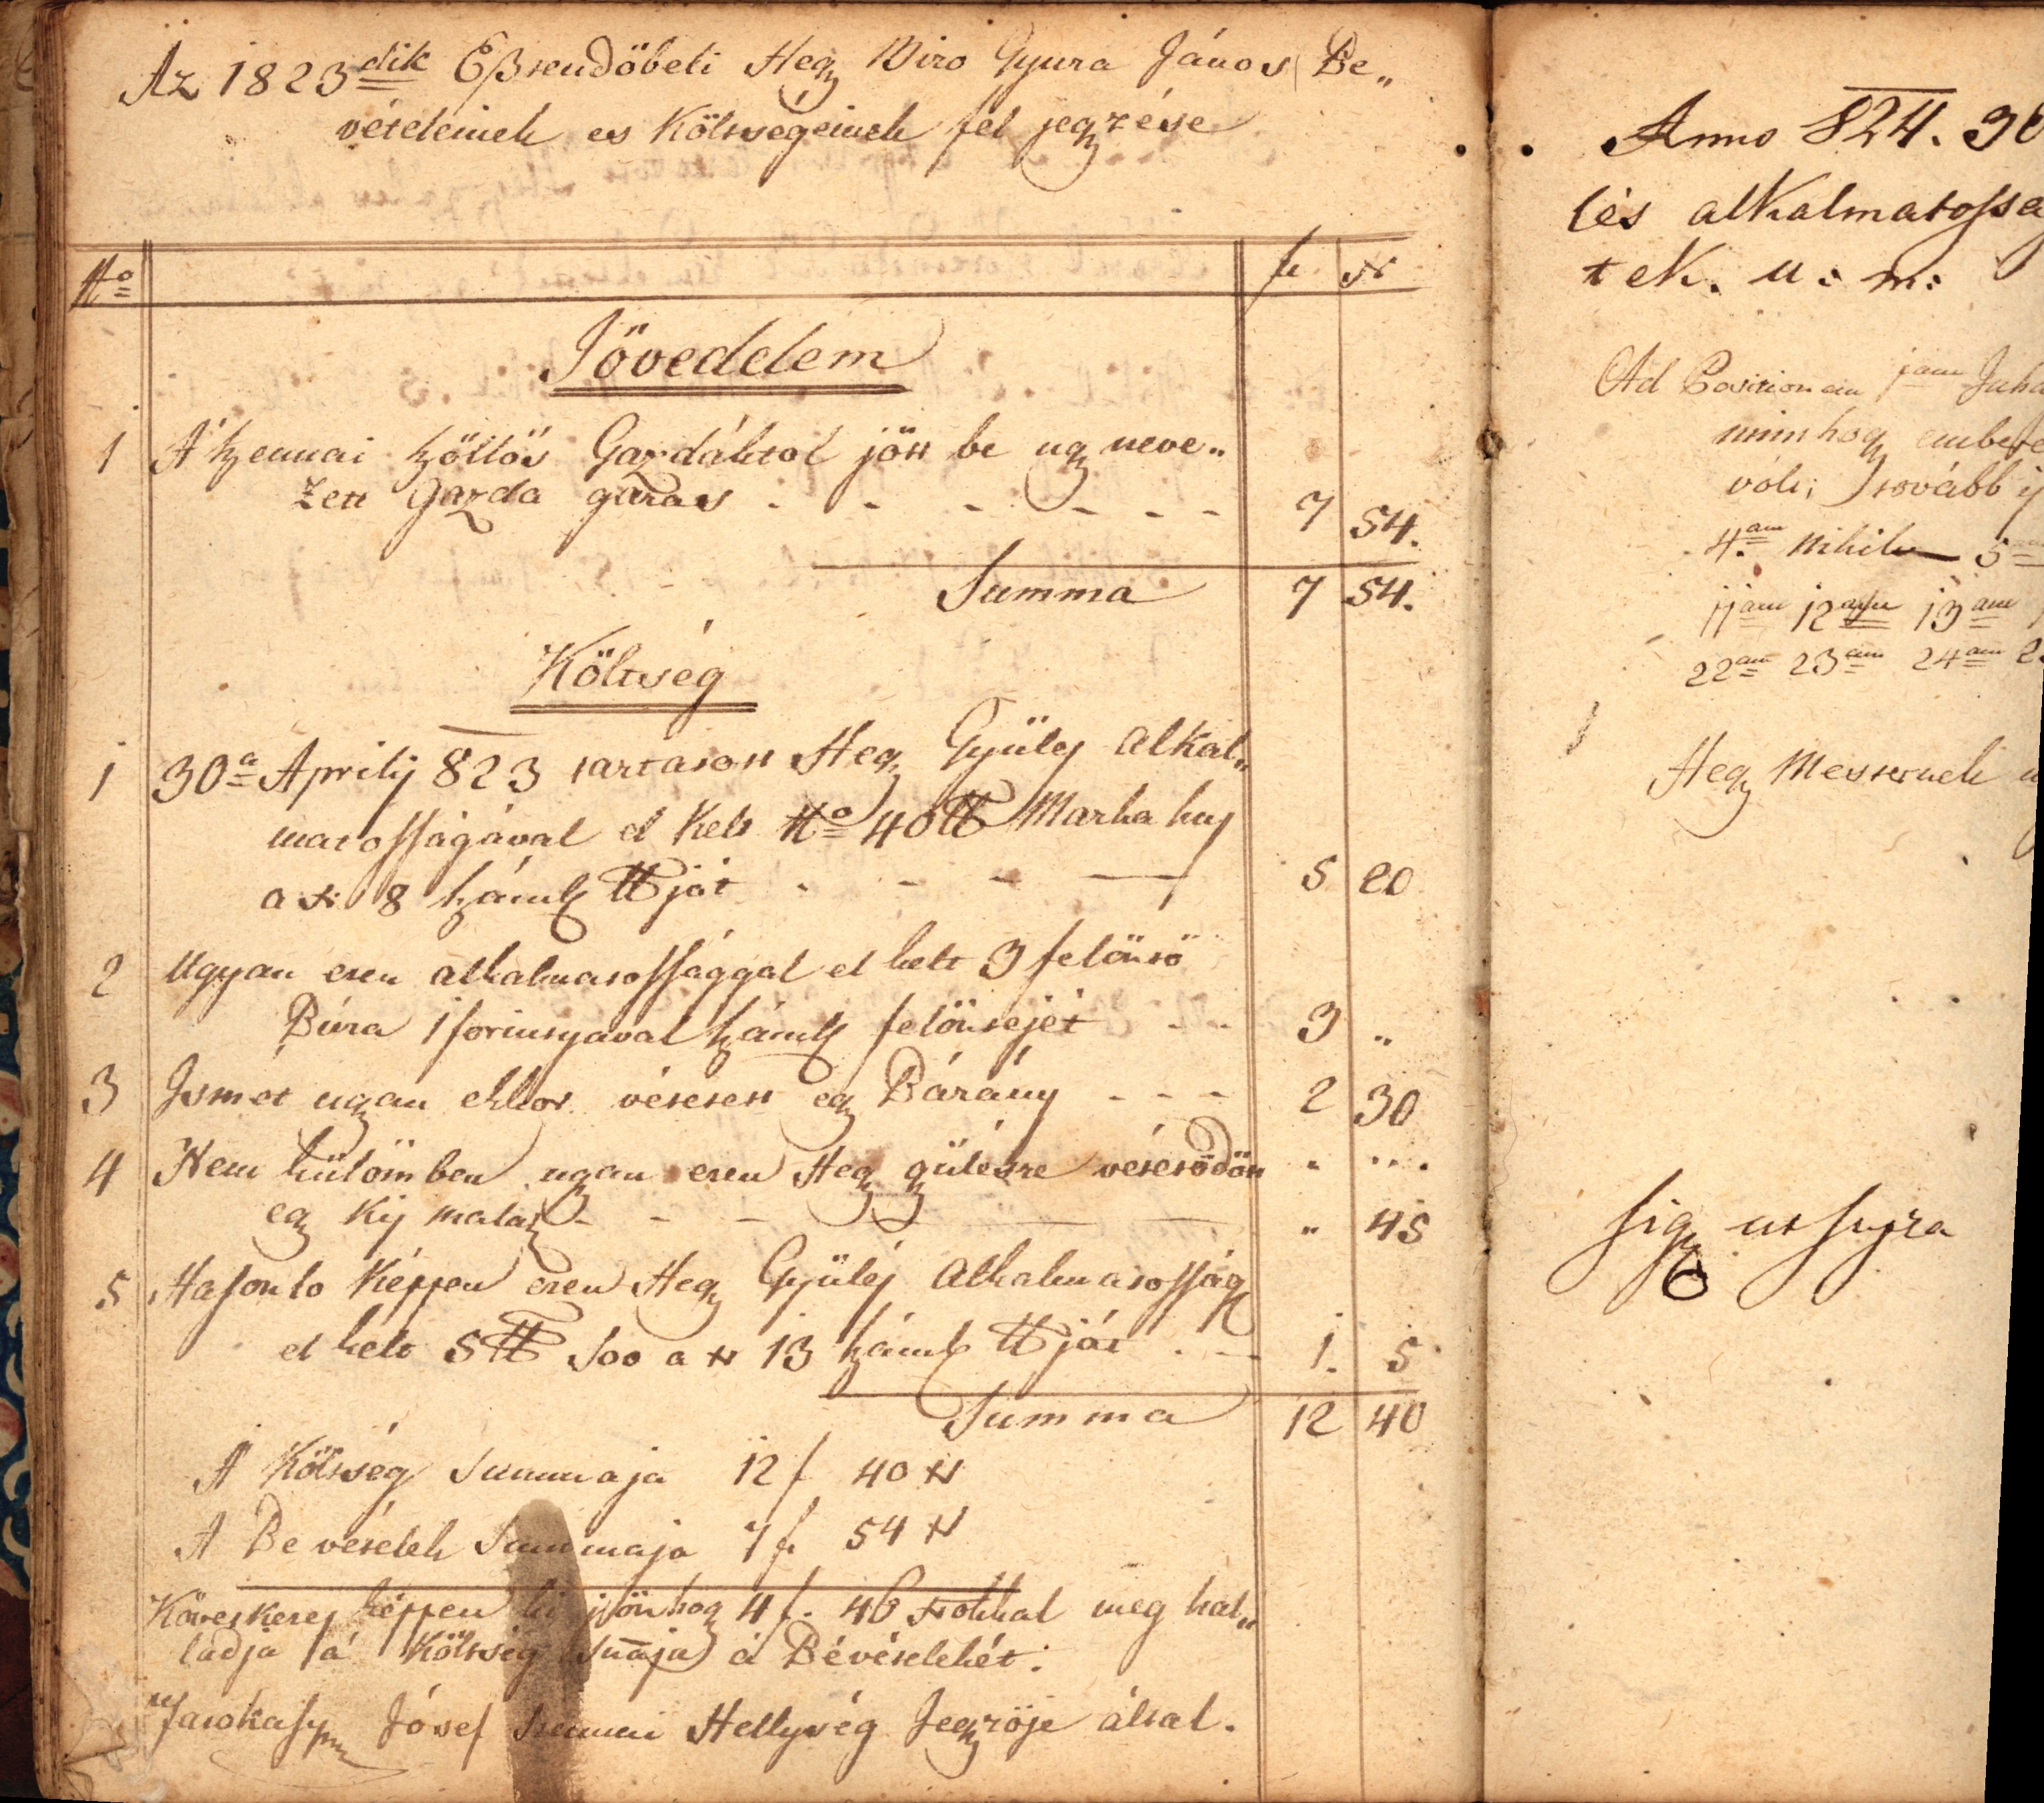 Az 1823dik Eßtendöbeli Hegy Biro Gyura János Be„
vételeinek es Költségeinek fel jegyzése
No f xr
Jövedelem
1 A' szennai szöllös Gazdáktol jött be ugy neve„
zett Gazda garas 7 54.
Summa 7 54.
Költség
1 30a Aprilij 823 tartatott Hegy Gyülés alkal„
matosságával el kelt No 40 ℔ Marha hus
a xr 8 száml ℔ját 5 20
2 Ugyan ezen alkalmatossággal el kelt 3 felöntö
Búza 1 forintyaval száml felöntejét 3 „
3 Ismet ugyan ekkor vétetett egy Bárány 2 30
4 Nem külömben ugyan ezen Hegy gülésre vétetödött „ „.
egy kis malatz „ 45
5 Hasonlo képpen ezen Hegy Gyülés alkalmatosság
el kelt 5 ℔ Soo a xr 13 száml ℔ját 1. 5
Summa 12 40
A' Költség Summaja 12 f 40 xr
A Bevételek Summaja 7 f 54 xr
Következes képpen ki jön hogy 4 f. 46 xrokkal meg hal„
ladja a' Költség Sum̄aja a' Bévételekét.
Jósef Szennai Hellység Jegyzöje által.
Anno 824. 30
lés alkalmatossa
tek. u: m:
Ad Positionem 1am Juha
minthogy embere
vólt; további
4.am nihil 5
11am 12am 13am
22am 23am 24am 2
Hegy Mesternek
Sig ut supra